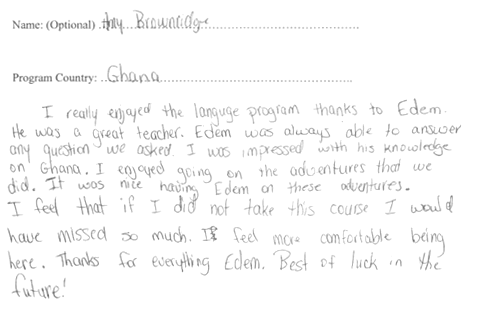 Name: (Optional) Amy Brownridge
Program Country: Ghana
I really enjoyed the languge program thanks to Edem.
He was a great teacher. Edem was always able to answer
any question we asked. I was impressed with his knowledge
on Ghana. I enjoyed going on the adventures that we
did. It was nice having Edem on these adventures.
I feel that if I did not take this course I would
have missed so much. I feel more comfortable being
here. Thanks for everything Edem. Best of luck in the
future!